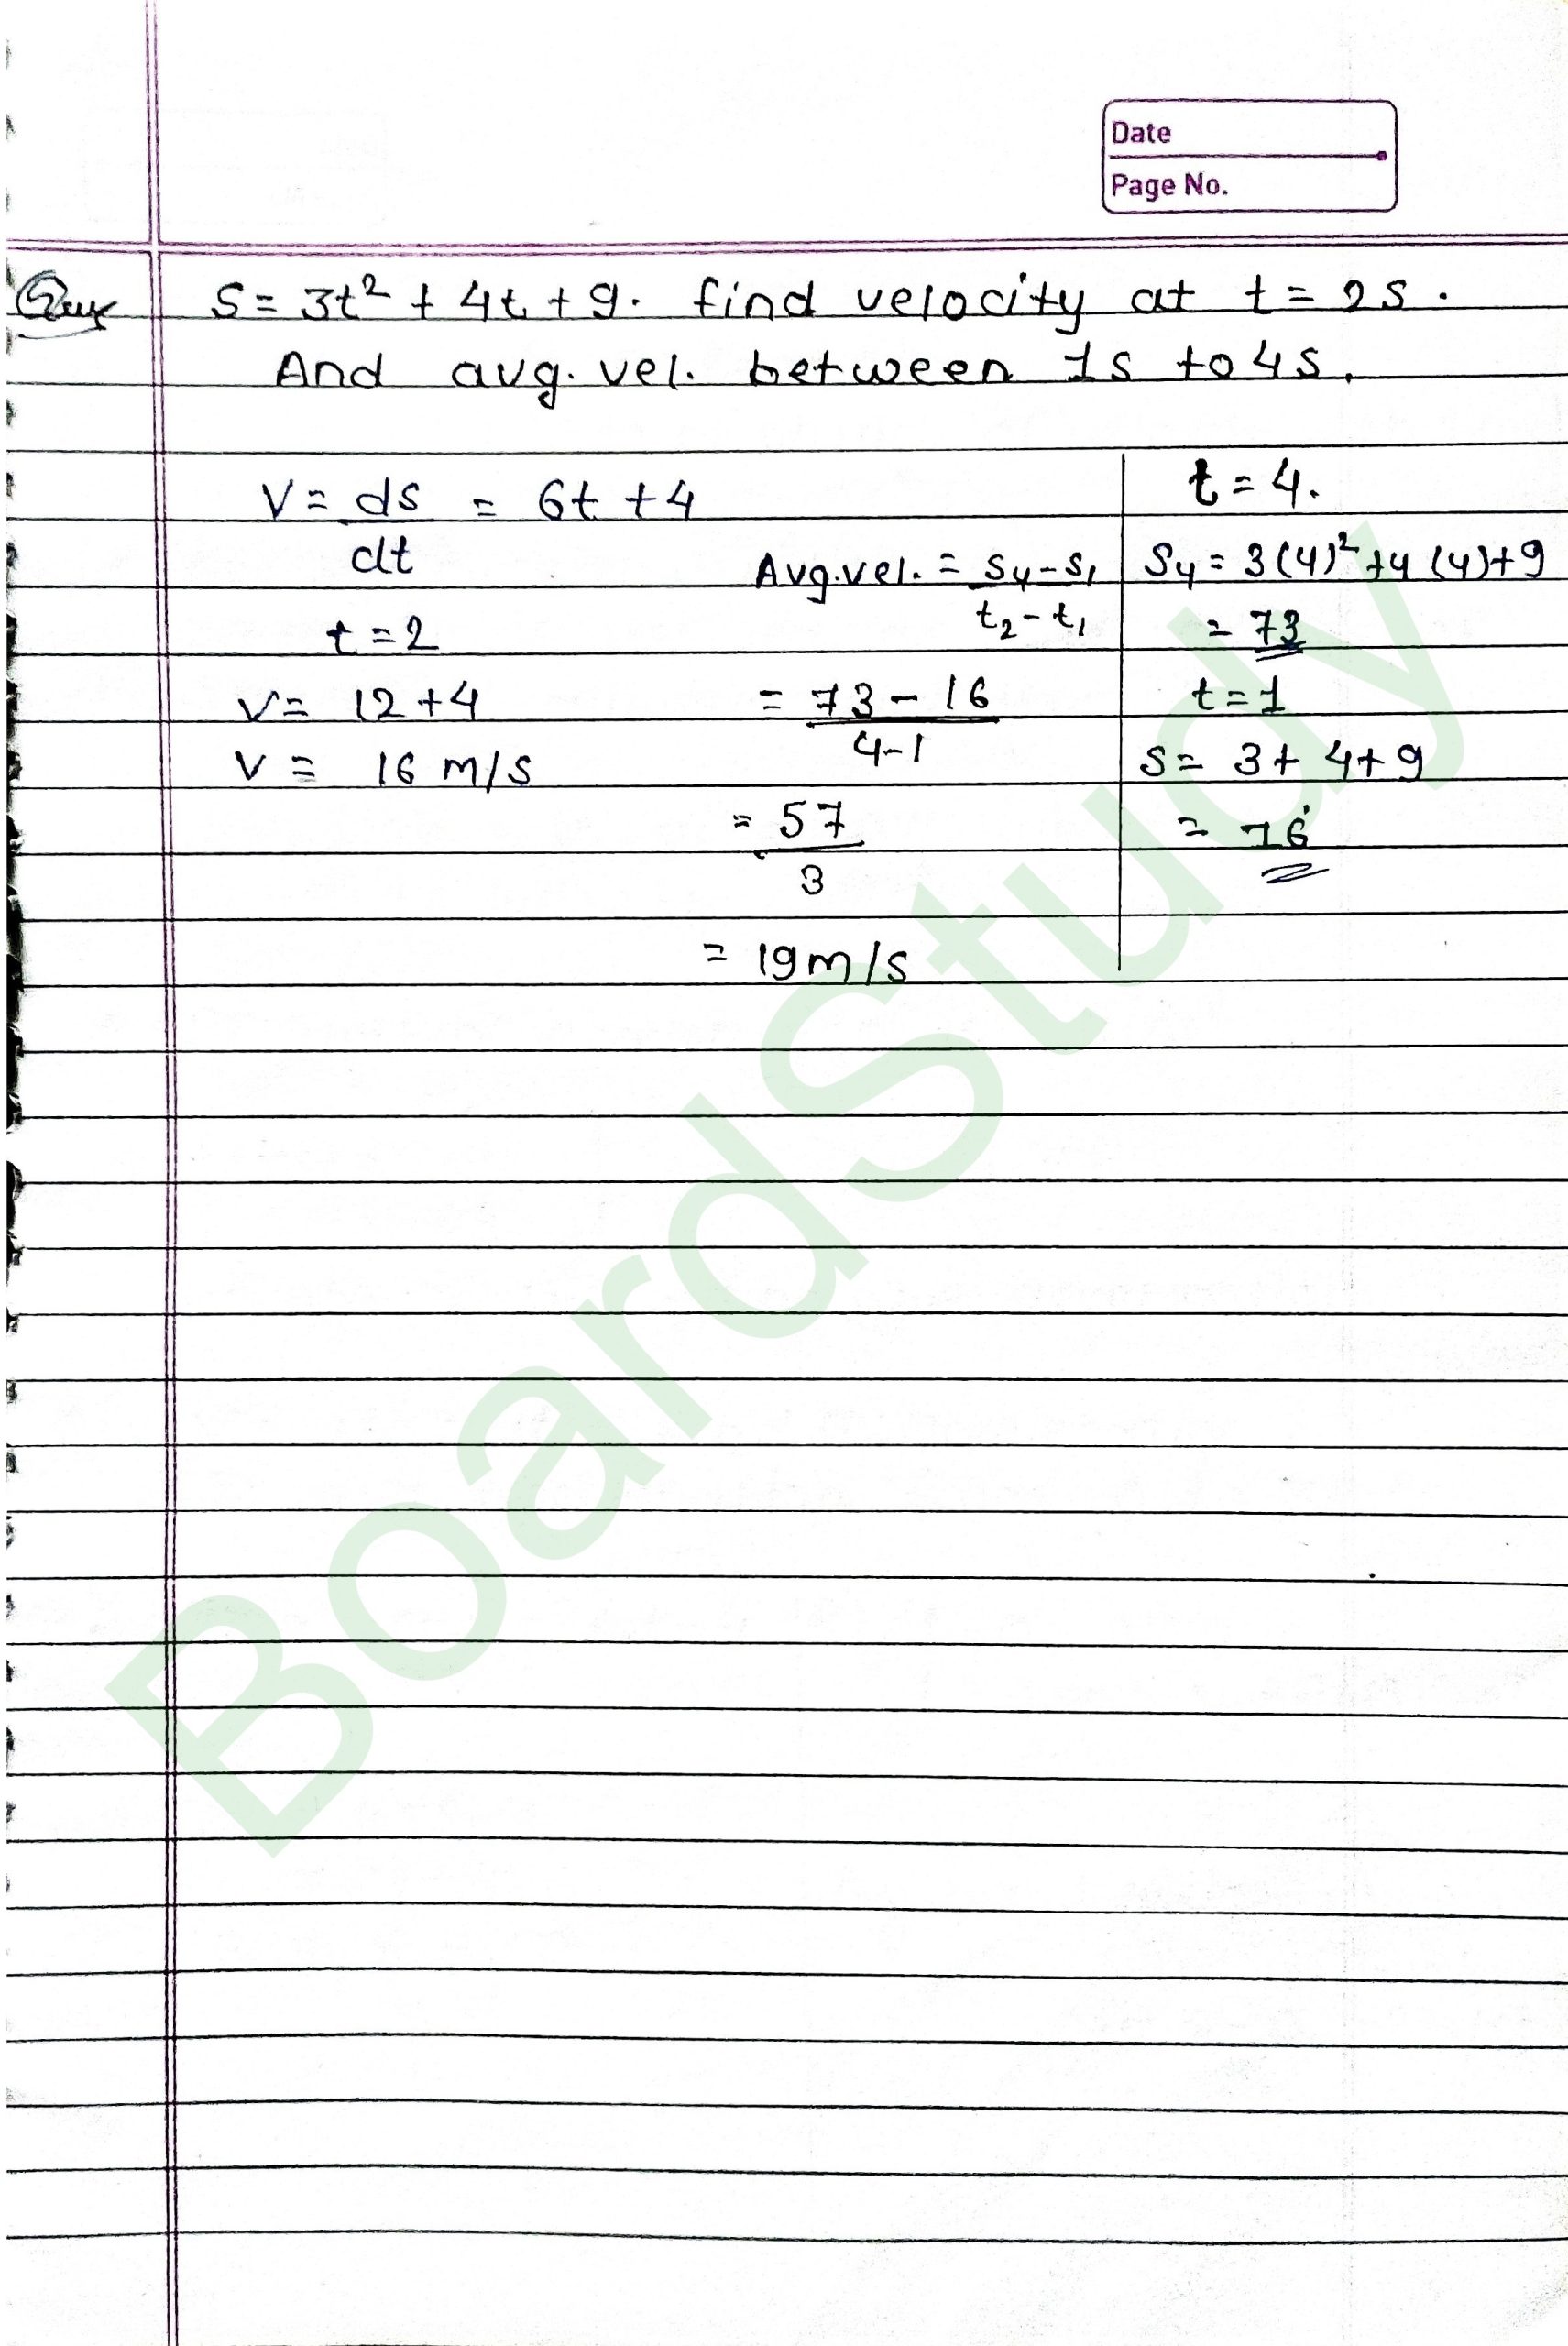 Date
Page No.
Ques S = 3t² + 4t + 9. find velocity at t = 2s.
And avg. vel. between 1s to 4s.
V = ds/dt = 6t + 4
t = 2
V = 12 + 4
V = 16 m/s
Avg. vel. = S₄ - S₁ / t₂ - t₁
= 73 - 16 / 4 - 1
= 57 / 3
= 19 m/s
t = 4.
S₄ = 3(4)² + 4(4) + 9
= 73
t = 1
S = 3 + 4 + 9
= 16
BoardStudy